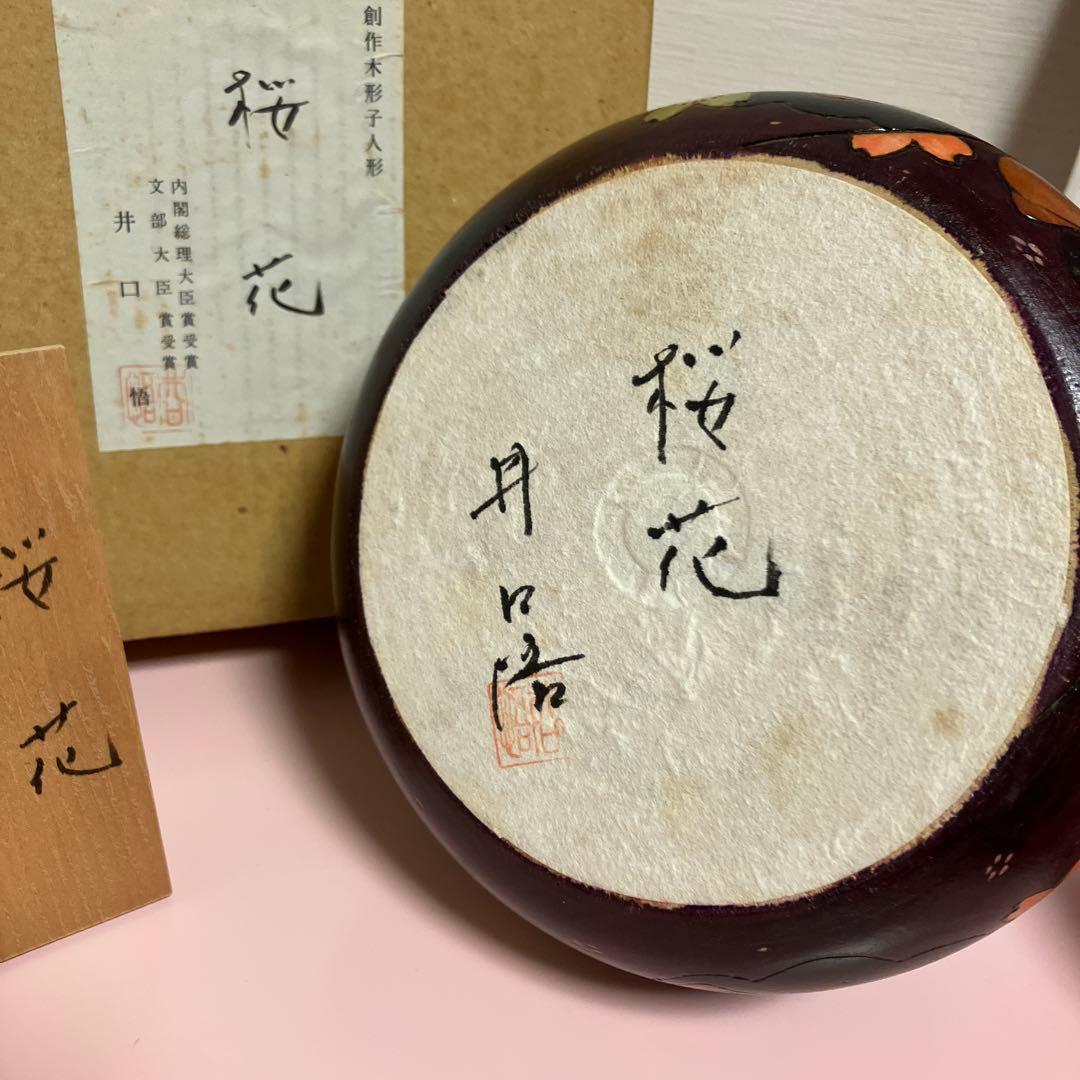 創作木形子人形
桜花
内閣総理大臣賞受賞
文部大臣賞受賞
井口悟
桜花
井口悟
桜花